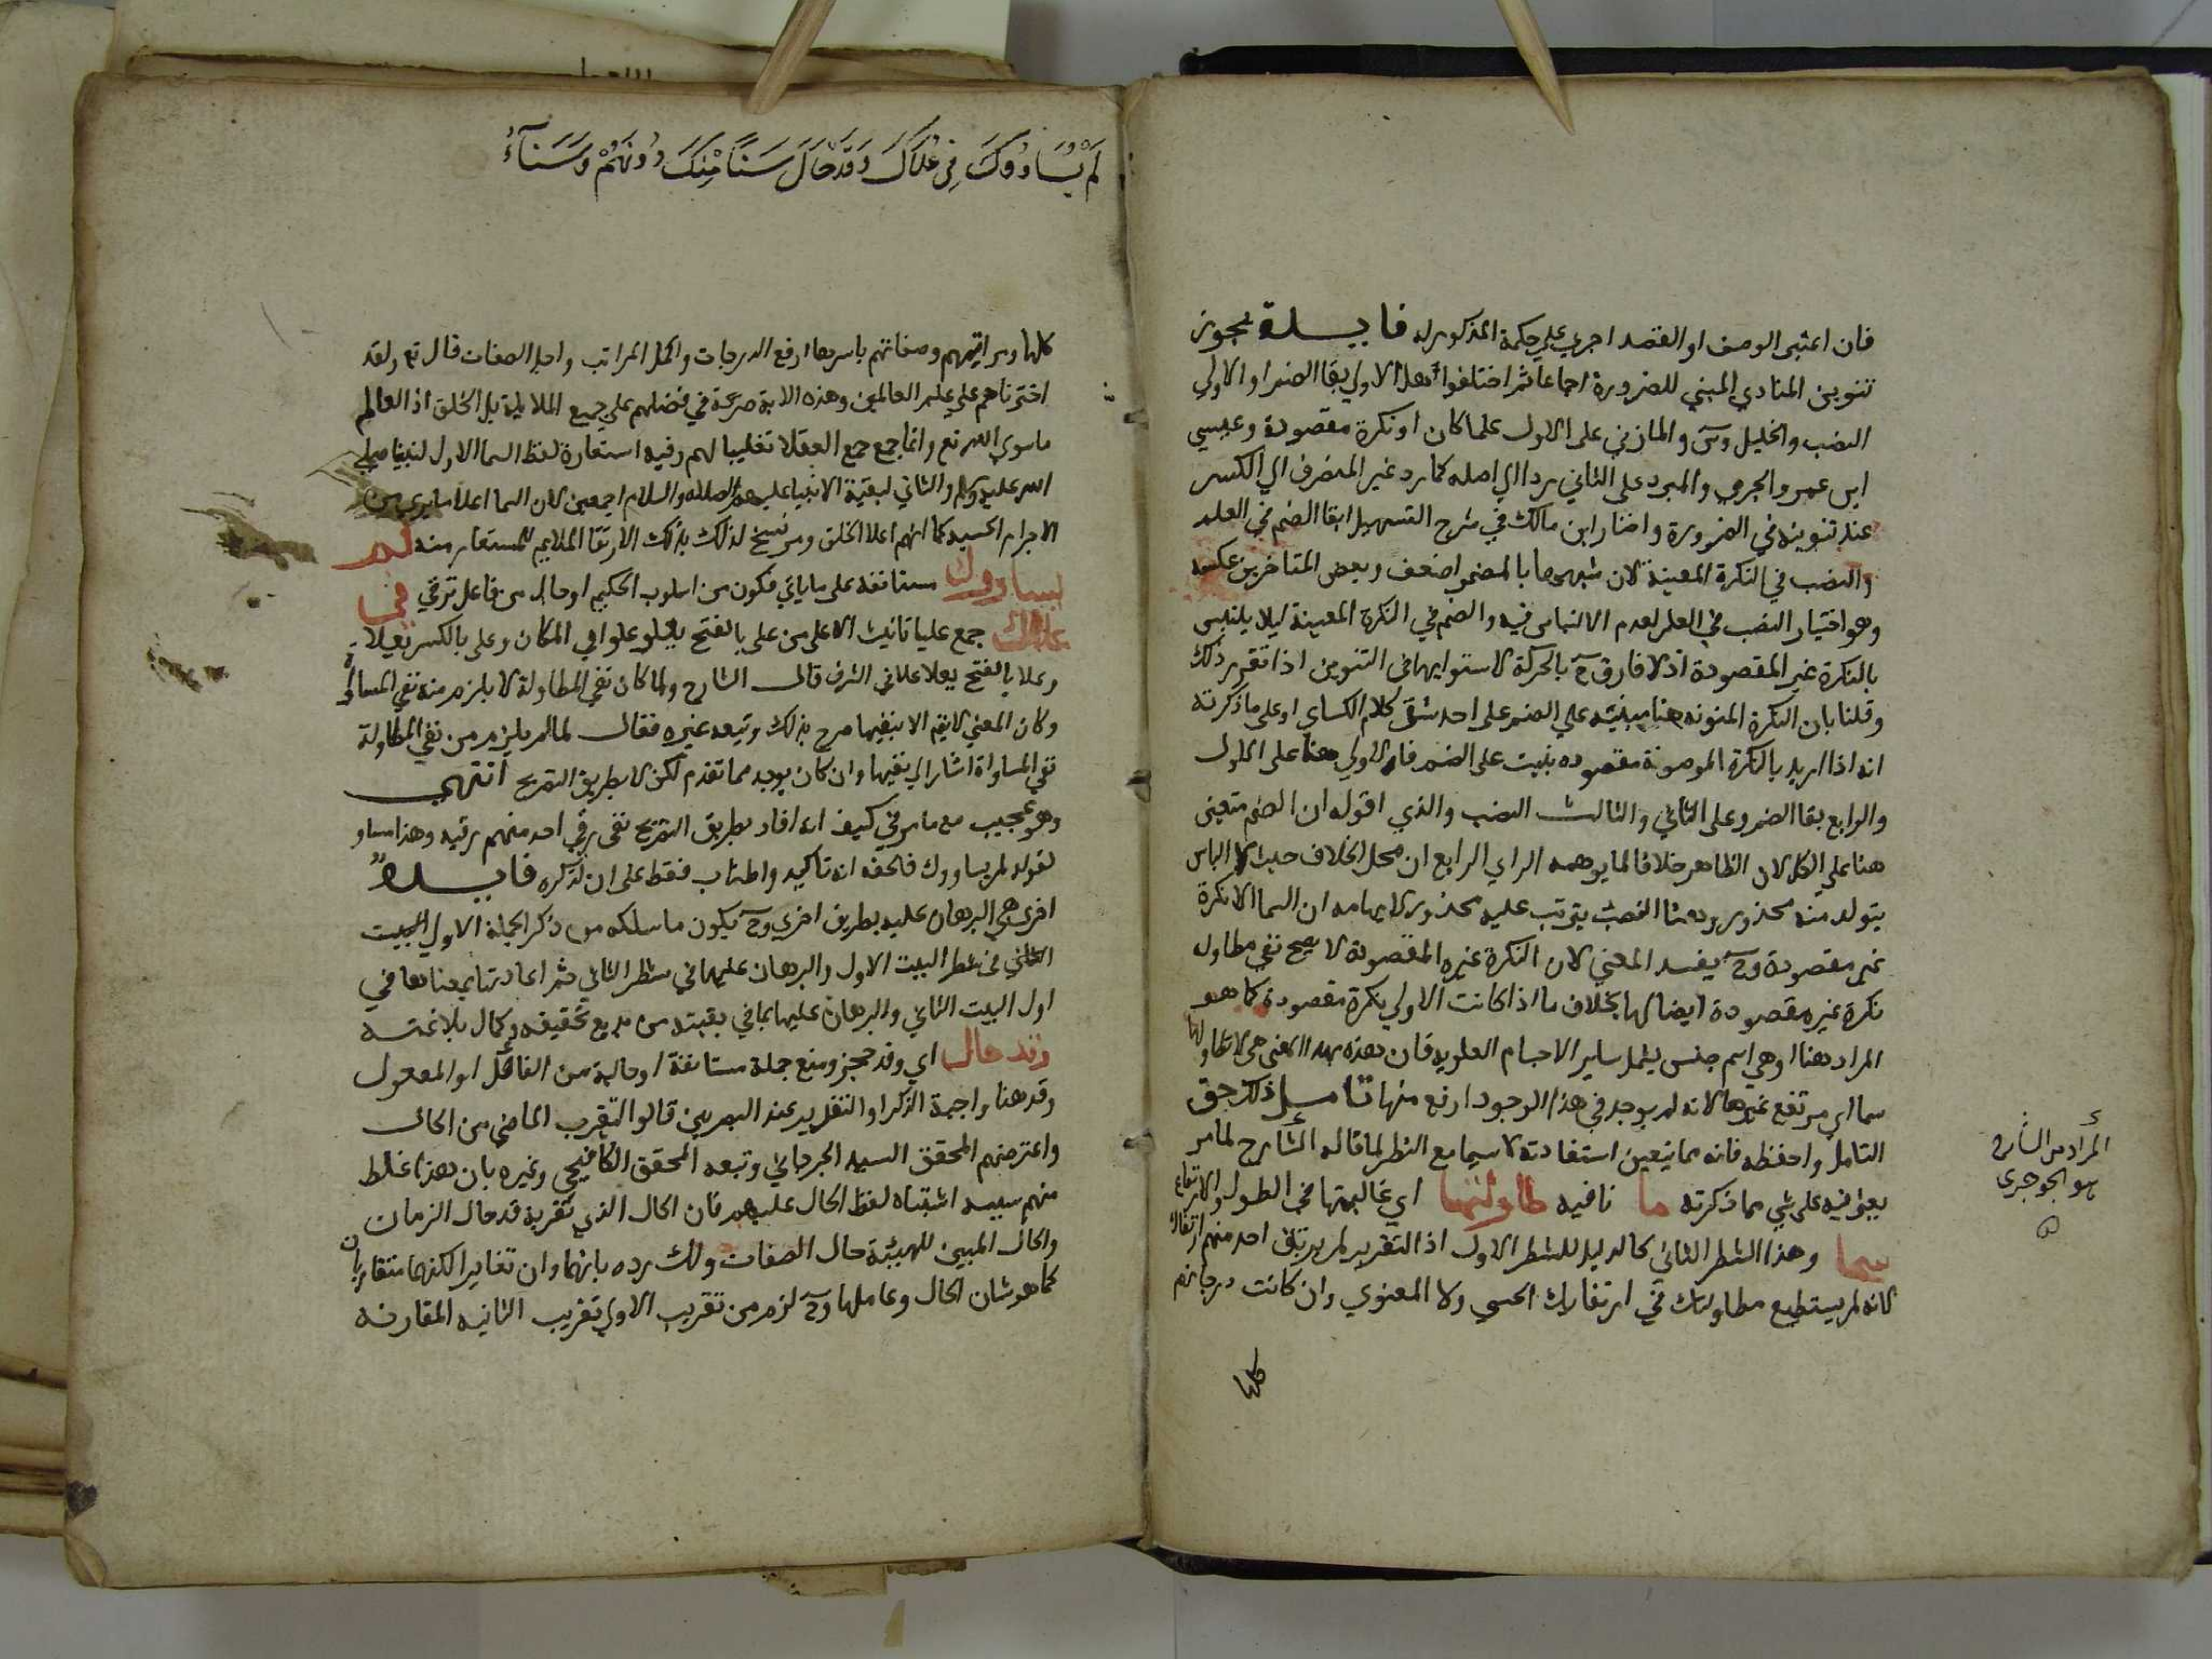 فان اعتبر الوصف او القصد اجري علي حكمه المذكور له فايدة يجوز
تنوين المنادي المبني للضرورة اجماعا ثم اختلفوا هل الاولي بقا الضم او الاولي
النصب والخليل وس والمازني على الاول علما كان او نكرة مقصودة وعيسي
ابن عمر والجرمي والمبرد على الثاني ردا الي اصله كما رد غير المنصرف الي الكسر
عند تنوينه في الضرورة واختار ابن مالك في شرح التسهيل ابقا الضم في العلم
والنصب في النكرة المعينة لان شبهها بالمضمر اضعف وبعض المتاخرين عكسه
وهو اختيار النصب في العلم لعدم الالتباس فيه والضم في النكرة المعينة ليلا يلتبس
بالنكرة غير المقصودة اذ لا فارق ح بالحركة لاستوايهما في التنوين اذا تقرر ذلك
وقلنا بان النكرة المنونه هنا مبنيته علي الضم على احد شقي كلام الكساي او على ما ذكرته
انه اذا اريد بالنكرة الموصوفة مقصوده بنيت على الضم فالاولي هنا على الاول
والرابع بقا الضم وعلى الثاني والثالث النصب والذي اقوله ان الضم متعين
هنا علي الكل لان الظاهر خلافا لما يوهمه الراي الرابع ان محل الخلاف حيث لا الباس
يتولد منه محذور وهنا النصب يترتب عليه محذور لايهامه ان السما الا نكرة
غير مقصودة وح يفسد المعني لان النكرة غير المقصودة لا يصح نفي مطاول
نكرة غير مقصودة ايضا لها بخلاف ما اذا كانت الاولي نكرة مقصودة كما هو
المراد هنا اوهي اسم جنس يشمل ساير الاجسام العلوية فان هذه بهذا المعنى هي لا تطاولها
سما اي مرتفع غيرها لانه لم يوجد في هذا الوجود ارفع منها تامل ذلك حق
التامل واحفظه فانه مما يتعين استفادته لا سيما مع النظر لما قاله الشارح لما مر
يعثر فيه على شي مما ذكرته ما نافيه طاولتها اي غالبتها في الطول والارتفاع
سما وهذا الشطر الثاني كالدليل للشطر الاول اذ التقرير لم يرتق احد منهم ارتقاك
لانه لم يستطيع مطاولتك في ارتقايك الحسي ولا المعنوي وان كانت درجاتهم
كلها
المراد من الشارح
هو الجوجري
لَمْ يُسَاوُوكَ فِي عُلَاكَ وَقَدْ حَالَ سَنًا مِّنْكَ دُونَهُمْ وَسَنَآءُ
كلها ومراتبهم وصفاتهم باسرها ارفع الدرجات واكمل المراتب واجل الصفات قال تع ولقد
اخترناهم على علم العالمين وهذه الاية صريحة في فضلهم على جميع الملايكة بل الخلق اذ العالم
ماسوي الله تع وانما جمع جمع العقلا تغليبا لهم وفيه استعارة لفظ السما الاول لنبينا صلي
الله عليه وسلم والثاني لبقية الانبيا عليهم الصلاه والسلام اجمعين لان السما اعلا ما يري من
الاجرام الحسية كما انهم اعلا الخلق ومرشح لذلك بذلك الارتقا الملايم للمستعار منه لم
يساووك مستانفه على ما ياتي فتكون من اسلوب الحكيم او حال من فاعل ترقي في
علاك جمع عليا تانيث الاعلى من على بالفتح يعلو علوا في المكان وعلى بالكسر يعلا
وعلا بالفتح يعلا علا في الشرف قال الشارح ولما كان نفي المطاولة لا يلزم منه نفي المساواة
وكان المعني لا يتم الا بنفيها صرح بذلك وتبعه غيره فقال لما لم يلزم من نفي المطاولة
نفي المساواة اشار الي نفيها وان كان يوجد مما تقدم لكن لا بطريق التصريح انتهي
وهو عجيب مع ما مر في كيف انه افاد بطريق التصريح نفي رقي احد منهم رقيه وهذا مساو
لقوله لم يساووك فالحق انه تاكيد واطناب فقط على ان لذكره فايدة
اخري هي البرهان عليه بطريق اخري وح يكون ما سلكه من ذكر الجملة الاولي البيت
الثاني في شطر البيت الاول والبرهان عليها في شطر الثاني ثم اعادتها بمعناها في
اول البيت الثاني والبرهان عليها بما في بقيته من بديع تحقيقه وكمال بلاغته
وقد حال اي وقد حجز ومنع جملة مستانفة او حالية من الفاعل او المفعول
وقد هنا واجبة الذكر او التقدير عند البصريين قالوا لتقرب الماضي من الحال
واعترضهم المحقق السيد الجرجاني وتبعه المحقق الكافيجي وغيره بان هذا غلط
منهم سببه اشتباه لفظ الحال عليهم فان الحال الذي تقربه قد حال الزمان
والحال المبين للهيئة حال الصفات ولك رده بانهما وان تغايرا لكنهما متقاربان
كما هو شان الحال وعاملها وح لزم من تقريب الاولي تقريب الثانيه المقارنه